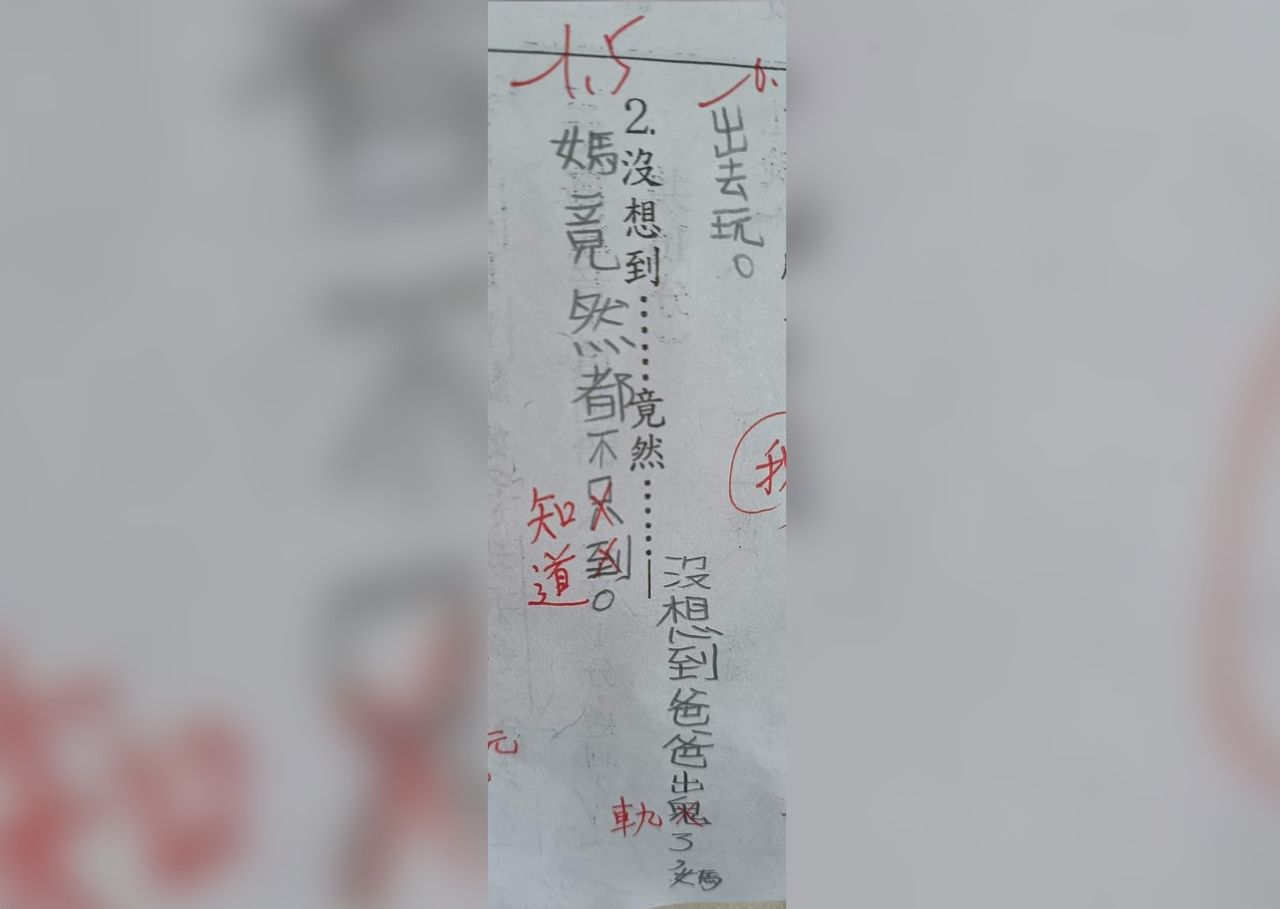 6.
出去玩。
我
2.沒想到……竟然……
沒想到爸爸出鬼了媽
軌
媽竟然都不只到。
知道
1.5
元